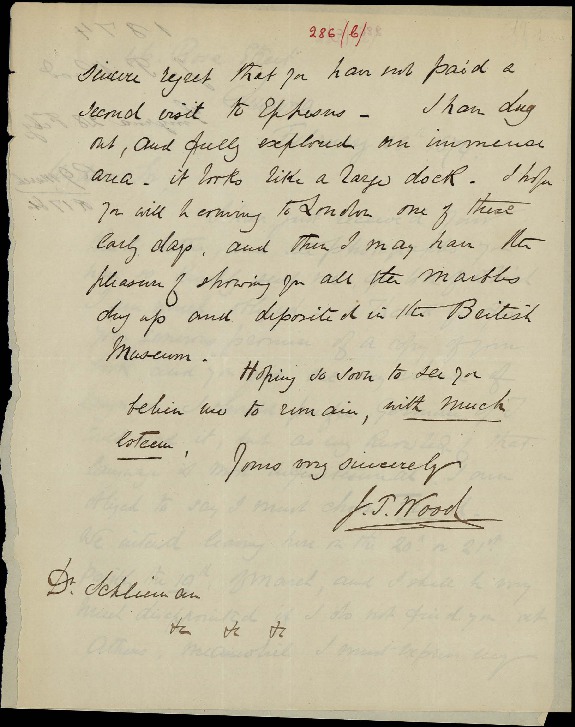 286/(b)
sincere regret that you have not paid a
second visit to Ephesus - I have dug
out, and fully explored an immense
area - it looks like a large dock. I hope
you will be coming to London one of these
early days, and then I may have the
pleasure of showing you all the marbles
dug up and deposited in the British
Museum.
Hoping so soon to see you
believe me to remain, with much
esteem,
Yours very sincerely
J. T. Wood
Dr. Schlieman
&c &c &c